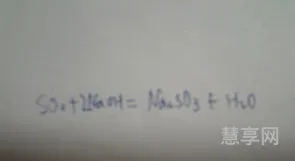 SO₂+2NaOH= Na₂SO₃ + H₂O
慧享网